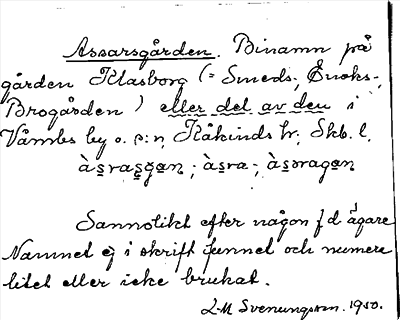 Assarsgården. Binamn på
gården Klasborg (= Smeds-, Snoks-,
Brogården) eller del av den i
Våmbs by o. s:n, Kåkinds hr, Skb. l.
àsrasgan; àsra-; àsoragan
Sannolikt efter någon f d ägare
Namnet ej i skrift funnet och numera
litet eller icke brukat.
L-M Svenungsson. 1950.